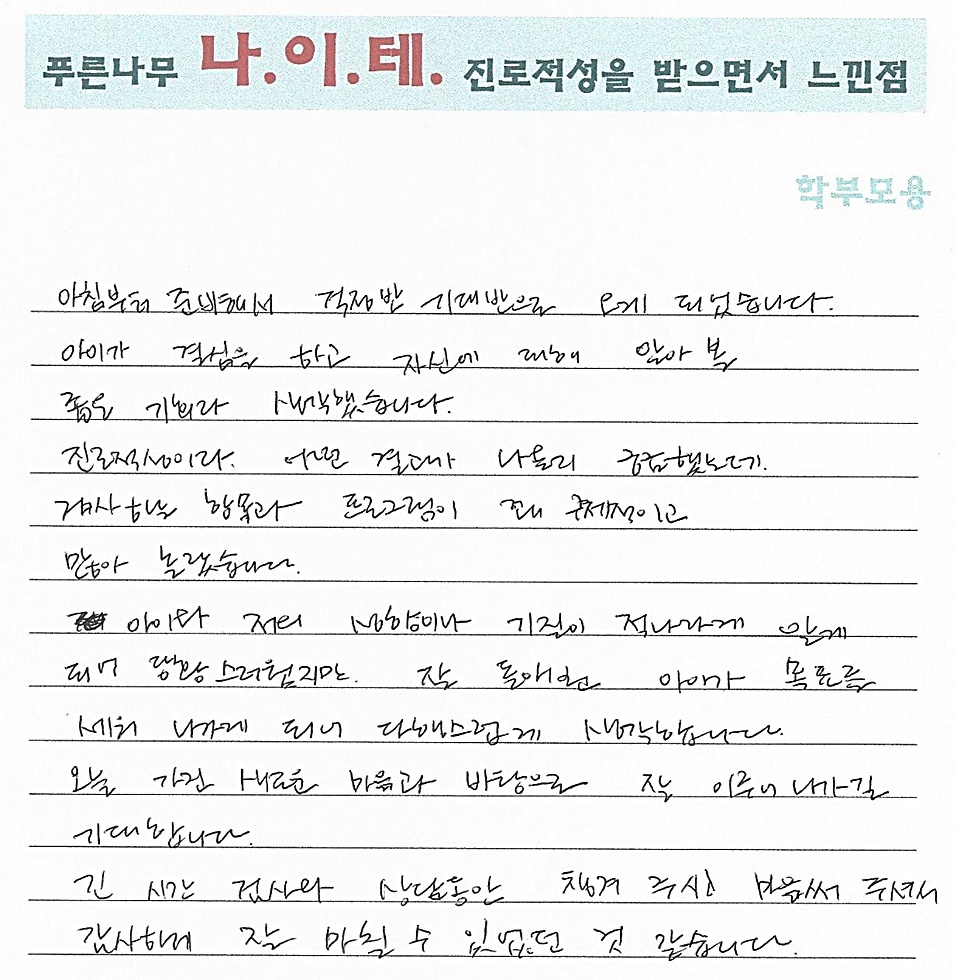 푸른나무 나.이.테. 진로적성을 받으면서 느낀점
학부모용
아침부터 준비해서 걱정반 기대반으로 오게 되었습니다.
아이가 결심을 하고 자신에 대해 알아볼
좋은 기회라 생각했습니다.
진로적성이라. 어떤 결과가 나올지 궁금했는데.
검사하는 항목과 프로그램이 꽤 구체적이고
많아 놀랬습니다.
아이와 저의 성향이나 기질이 적나라게 알게
되어 당황스러웠지만. 잘 아이가 목표를
세워 나가게 되니 다행스럽게 생각합니다.
오늘 가진 새로운 마음과 바탕으로 잘 이루어 나가길
기대합니다.
긴 시간 검사와 상담동안 챙겨 주시고 마음써 주셔서
감사하며 잘 마칠 수 있었던 것 같습니다.